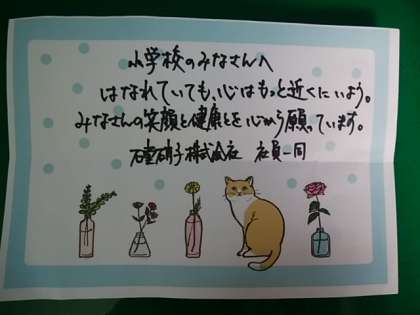 小学校のみなさんへ
はなれていても、心はもっと近くにいよう。
みなさんの笑顔と健康とを心から願っています。
石塚硝子株式会社 社員一同